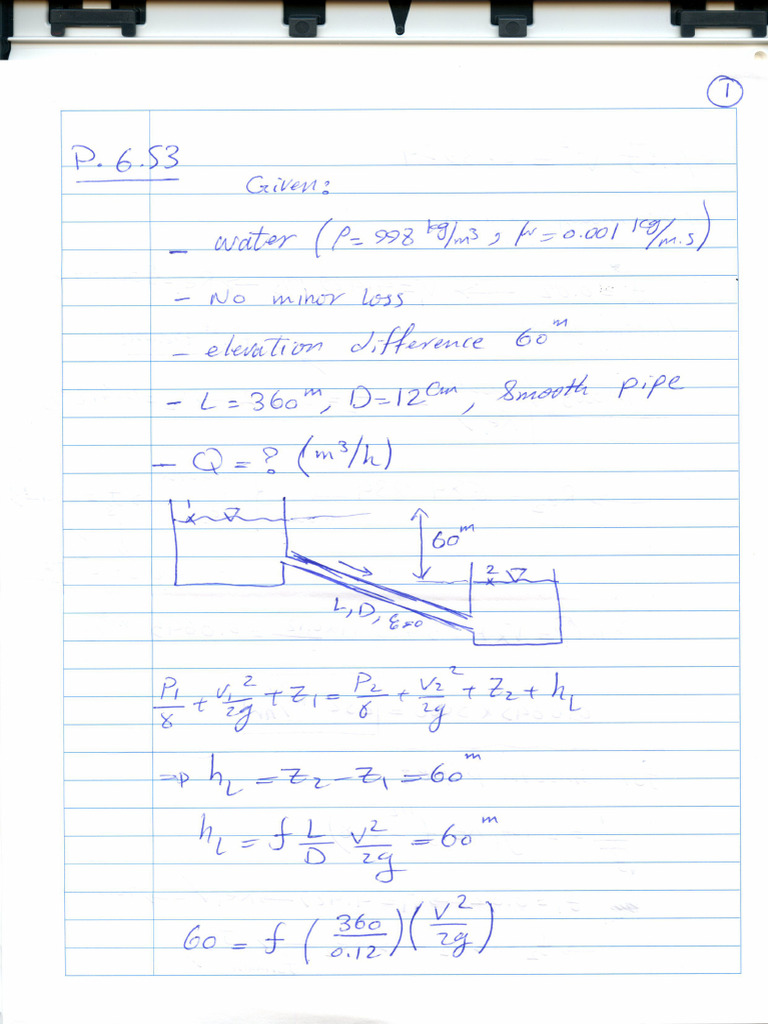 1
P. 6.53
Given:
- water (ρ = 998 kg/m3, μ = 0.001 kg/m.s)
- No minor loss
- elevation difference 60 m
- L = 360 m, D = 12 cm, Smooth pipe
- Q = ? (m3/h)
1
60 m
2
L, D, ε=0
P1/γ + V1^2/2g + Z1 = P2/γ + V2^2/2g + Z2 + hL
⇒ hL = Z2 - Z1 = 60 m
hL = f L/D V^2/2g = 60 m
60 = f (360/0.12)(V^2/2g)